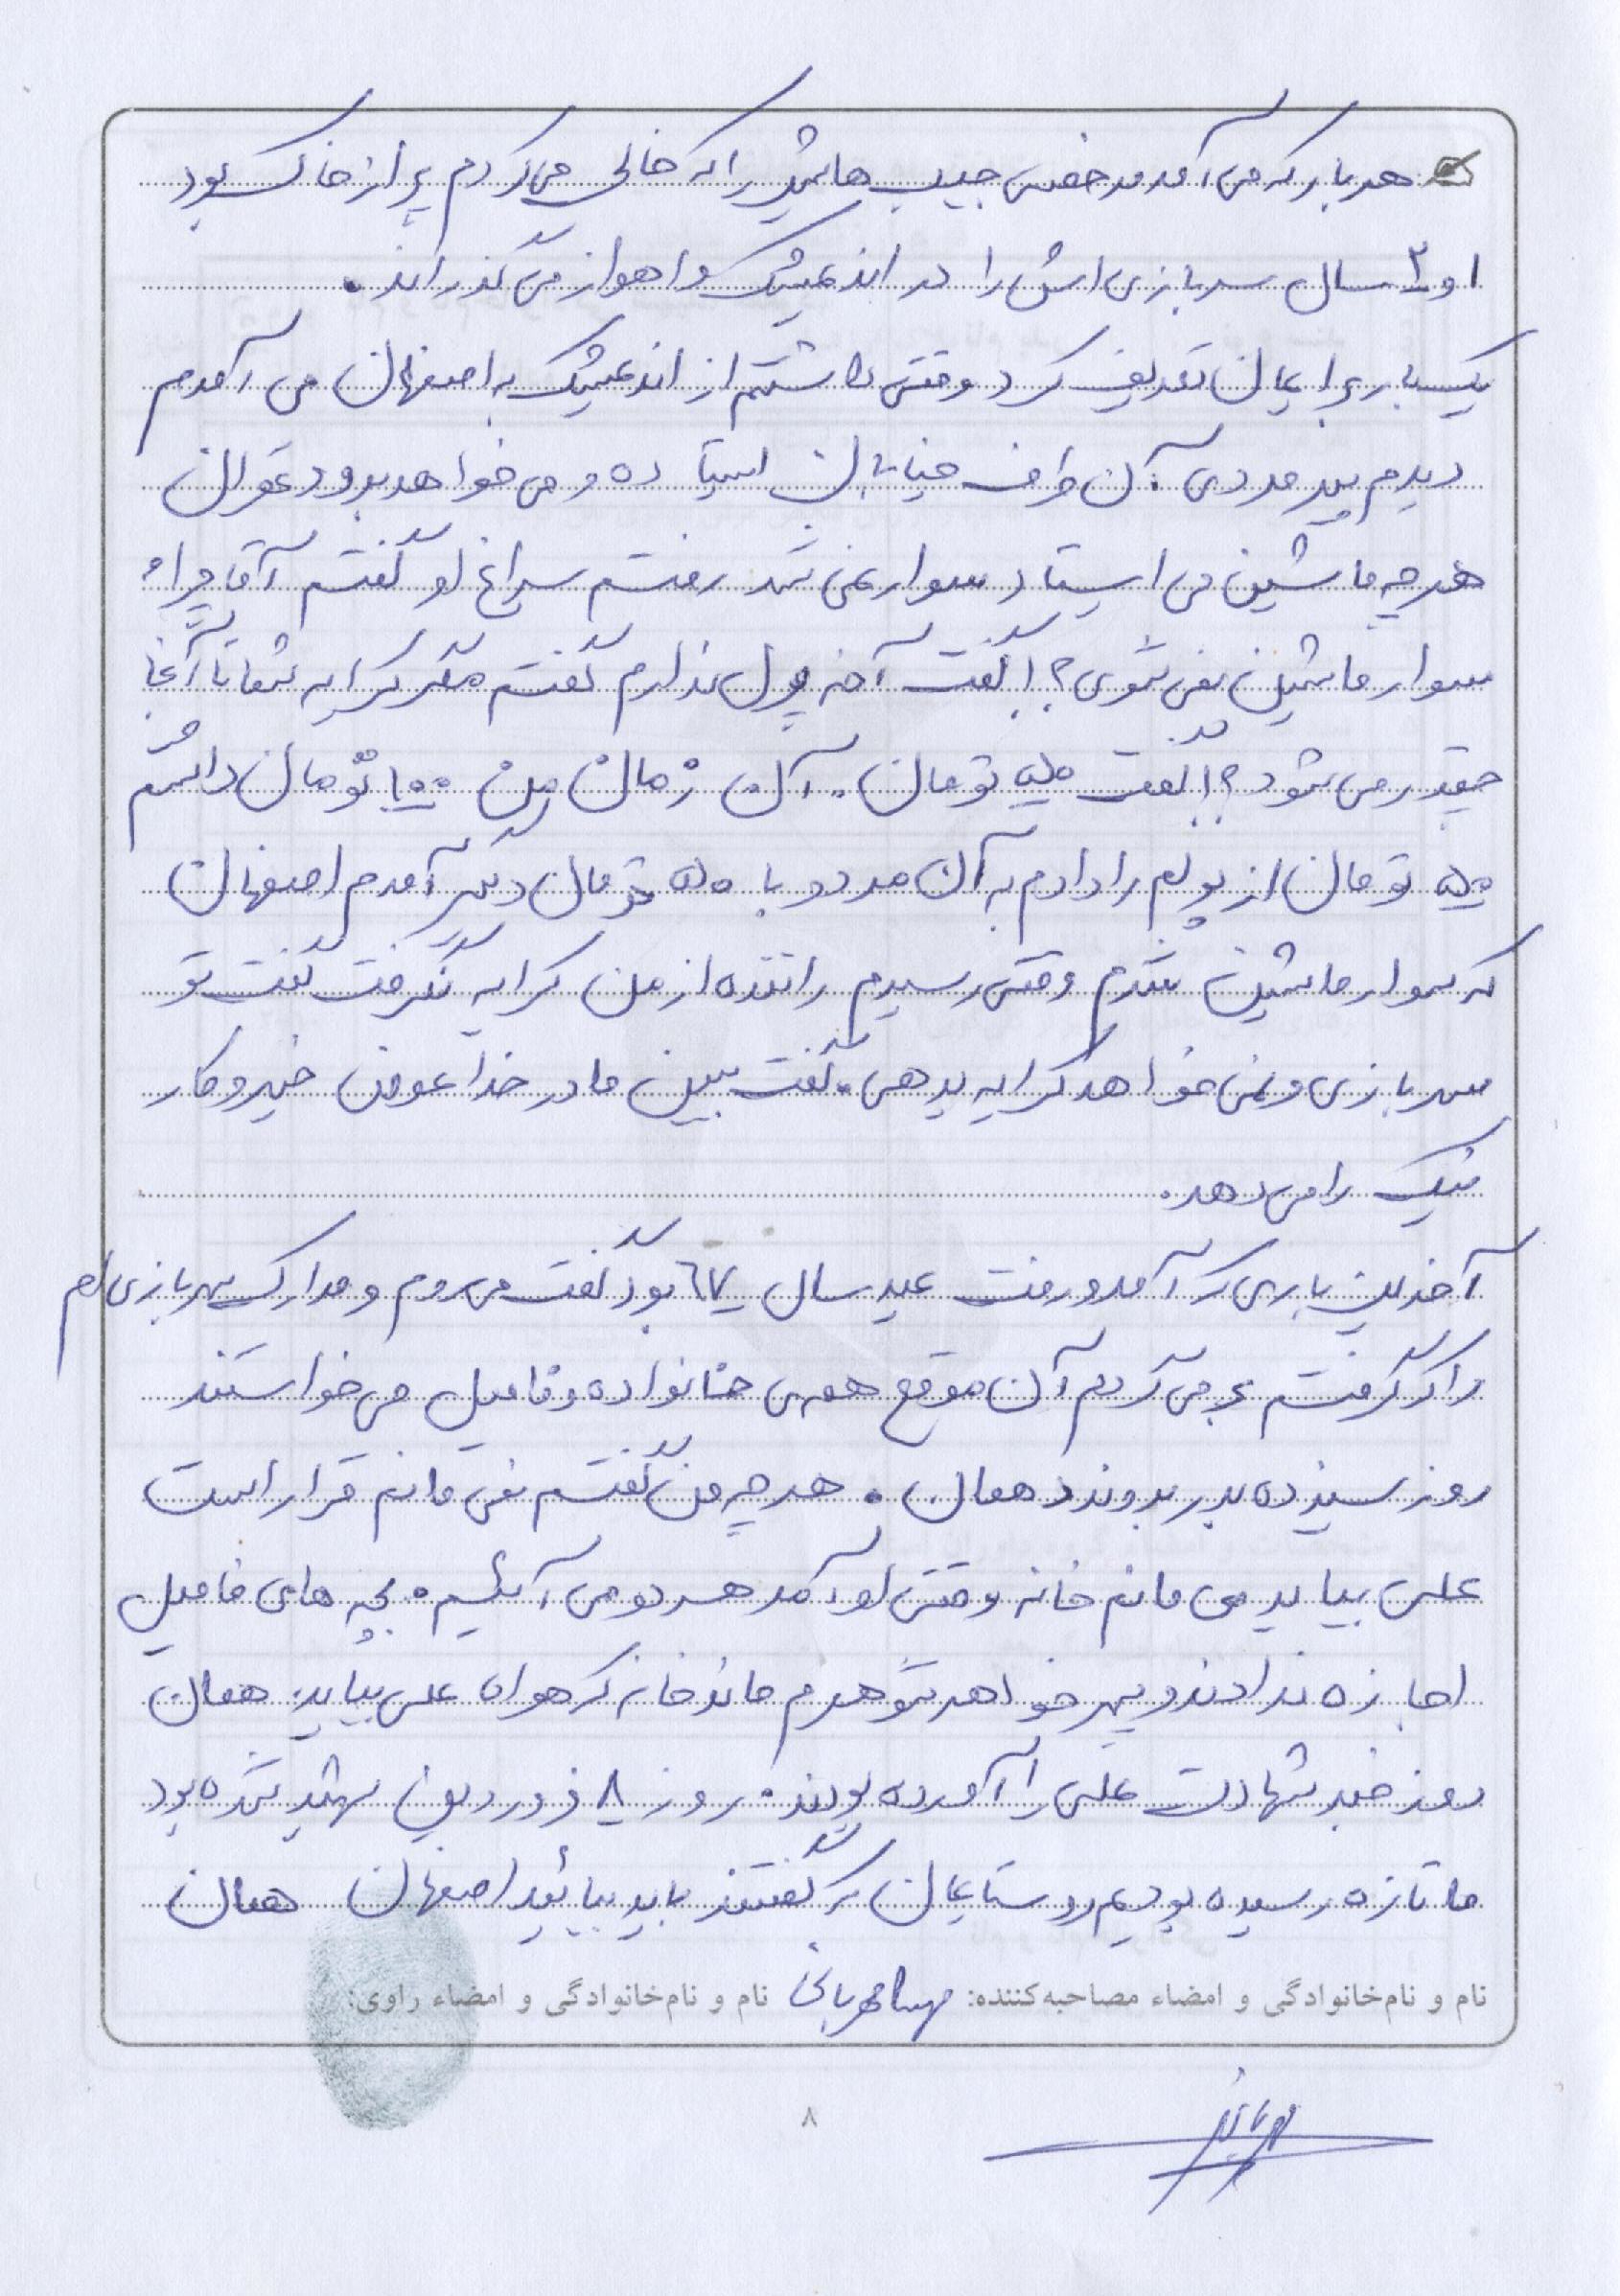 هر بار که می آمد مرخصی جیب هایش را که خالی می کردم پر از خاک بود
او ۲ سال سربازی اش را در اندیمشک و اهواز می گذراند.
یک بار برایمان تعریف کرد وقتی داشتم از اندیمشک به اصفهان می آمدم
دیدم پیرمردی آن طرف خیابان ایستاده و می خواهد برود
هرچه ماشین می ایستاد سوار نمی شد رفتم سراغ او گفتم آقا چرا
سوار ماشین نمی شوی؟! گفت آخه پول ندارم گفتم مگر کرایه شما تا آنجا
چقدر می شود؟! گفت ۵۰ تومان. آن زمان من ۱۰۰ تومان داشتم
۵۰ تومان از پولم را دادم به آن مرد و با ۵۰ تومان دیگر آمدم اصفهان
که سوار ماشین شدم وقتی رسیدم راننده از من کرایه نگرفت گفت تو
سربازی و نمی خواهد کرایه بدهی. گفت ببین مادر خدا عوض خیر و کار
نیک را می دهد.
آخرین باری که آمد و رفت عید سال ۶۷ بود گفت می روم و مدارک سربازی ام
را که گرفتم بر می گردم آن موقع همه ی خانواده و فامیل می خواستند
روز سیزده بدر بروند دهمان. هرچه من گفتم نمی مانم قرار است
علی بیاید می مانم خانه وقتی او آمد هر دو می آئیم. بچه های فامیل
اجازه ندادند و پسر خواهر شوهرم ماند خانه که همراه علی بیاید. همان
روز خبر شهادت علی را آورده بودند. روز ۸ فروردین شهید شده بود
ما تازه رسیده بودیم روستایمان که گفتند باید بیائید اصفهان همان
نام و نام‌خانوادگی و امضاء مصاحبه‌کننده: مهسا مهربانی نام و نام‌خانوادگی و امضاء راوی:
۸